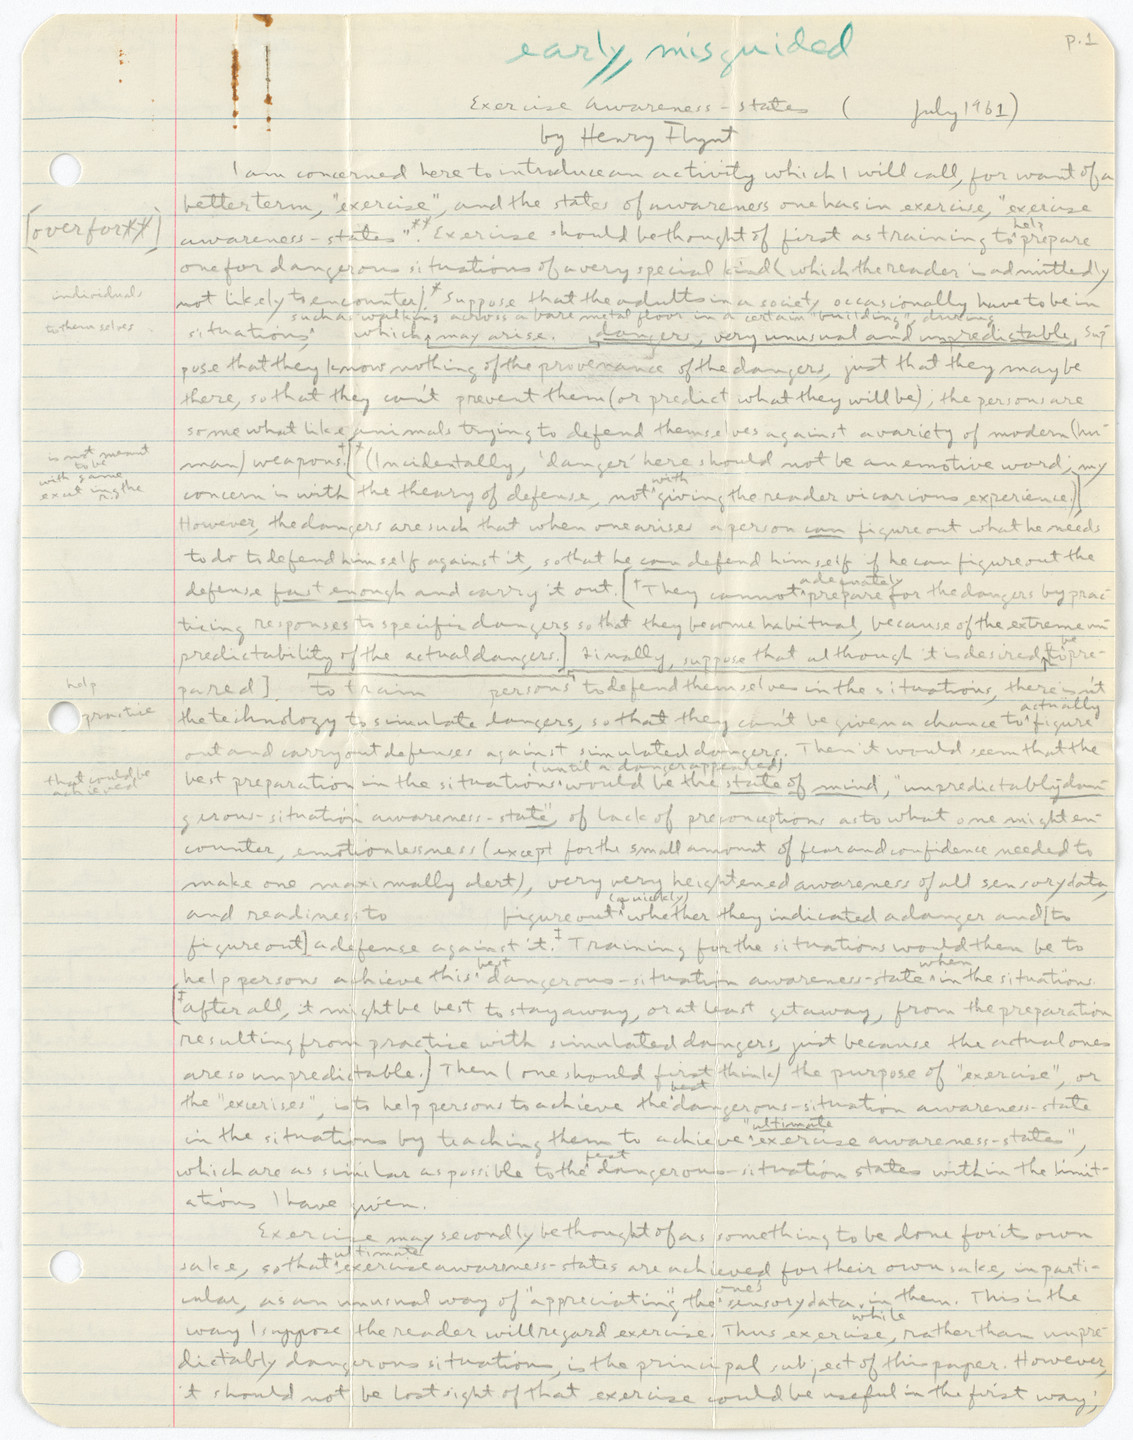 p.1
early, misguided
Exercise Awareness-states ( July 1961)
by Henry Flynt
I am concerned here to introduce an activity which I will call, for want of a
better term, "exercise", and the states of awareness one has in exercise, "exercise
[over for **]
awareness-states".** Exercise should be thought of first as training to help prepare
one for dangerous situations of a very special kind (which the reader is admittedly
individuals
not likely to encounter).* Suppose that the adults in a society occasionally have to be in
such as walking across a bare metal floor in a certain "building", during
to themselves
situations, which may arise. dangers, very unusual and unpredictable, Sup-
pose that they know nothing of the provenance of the dangers, just that they may be
there, so that they can't prevent them (or predict what they will be); the persons are
somewhat like animals trying to defend themselves against a variety of modern (hu-
is not meant
to be
with same
man) weapons. (Incidentally, 'danger' here should not be an emotive word; my
concern is with the theory of defense, not with giving the reader vicarious experience.)]
However, the dangers are such that when one arises a person can figure out what he needs
to do to defend himself against it, so that he can defend himself if he can figure out the
defense fast enough and carry it out. [†They cannot adequately prepare for the dangers by prac-
ticing responses to specific dangers so that they become habitual, because of the extreme un-
predictability of the actual dangers.] Finally, suppose that although it is desired to be pre-
help
pared] to train persons to defend themselves in the situations, there isn't
practice
the technology to simulate dangers, so that they can't be given a chance to actually figure
out and carry out defenses against simulated dangers. Then it would seem that the
that could be
achieved
best preparation in the situations (until a danger appeared) would be the state of mind, "unpredictably-dan-
gerous-situation awareness-state", of lack of preconceptions as to what one might en-
counter, emotionlessness (except for the small amount of fear and confidence needed to
make one maximally alert), very very heightened awareness of all sensory data,
and readiness to figure out (quickly) whether they indicated a danger and [to
figure out] a defense against it.‡ Training for the situations would then be to
help persons achieve this best dangerous-situation awareness-state when in the situations.
[‡after all, it might be best to stay away, or at least get away, from the preparation
resulting from practice with simulated dangers, just because the actual ones
are so unpredictable.] Then (one should first think) the purpose of "exercise", or
the "exercises", is to help persons to achieve the best dangerous-situation awareness-state
in the situations by teaching them to achieve "ultimate exercise awareness-states",
which are as similar as possible to the best dangerous-situation states within the limit-
ations I have given.
Exercise may secondly be thought of as something to be done for its own
sake, so that ultimate exercise awareness-states are achieved for their own sake, in parti-
cular, as an unusual way of "appreciating" the ones sensory data in them. This is the
way I suppose the reader will regard exercise. Thus exercise, while rather than unpre-
dictably dangerous situations, is the principal subject of this paper. However,
it should not be lost sight of that exercise could be useful in the first way;